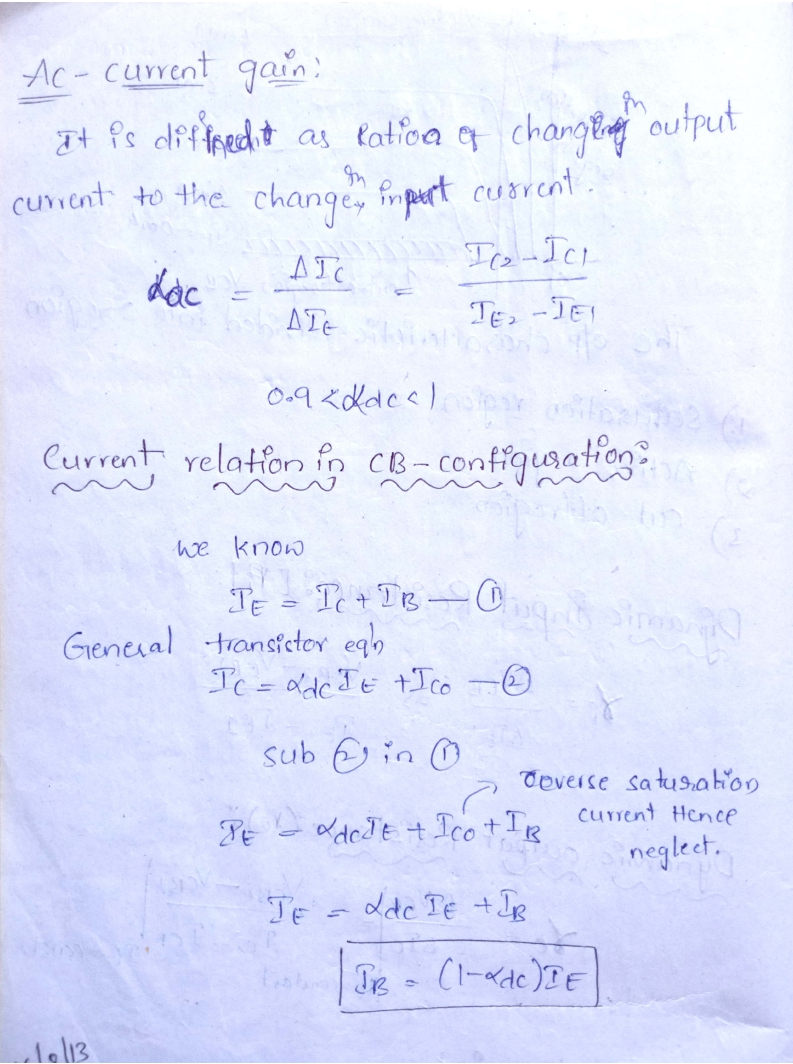 Ac - current gain:
It is diffined as ratioa of change in output
current to the change, in input current.
αac = ΔIC / ΔIE = IC2 - IC1 / IE2 - IE1
0.9 < αdc < 1
Current relation in CB - configuration:
we know
IE = IC + IB — ①
General transistor eqn
IC = αdc IE + ICO — ②
sub ② in ①
reverse saturation
current Hence
neglect.
IE = αdc IE + ICO + IB
IE = αdc IE + IB
IB = (1-αdc) IE